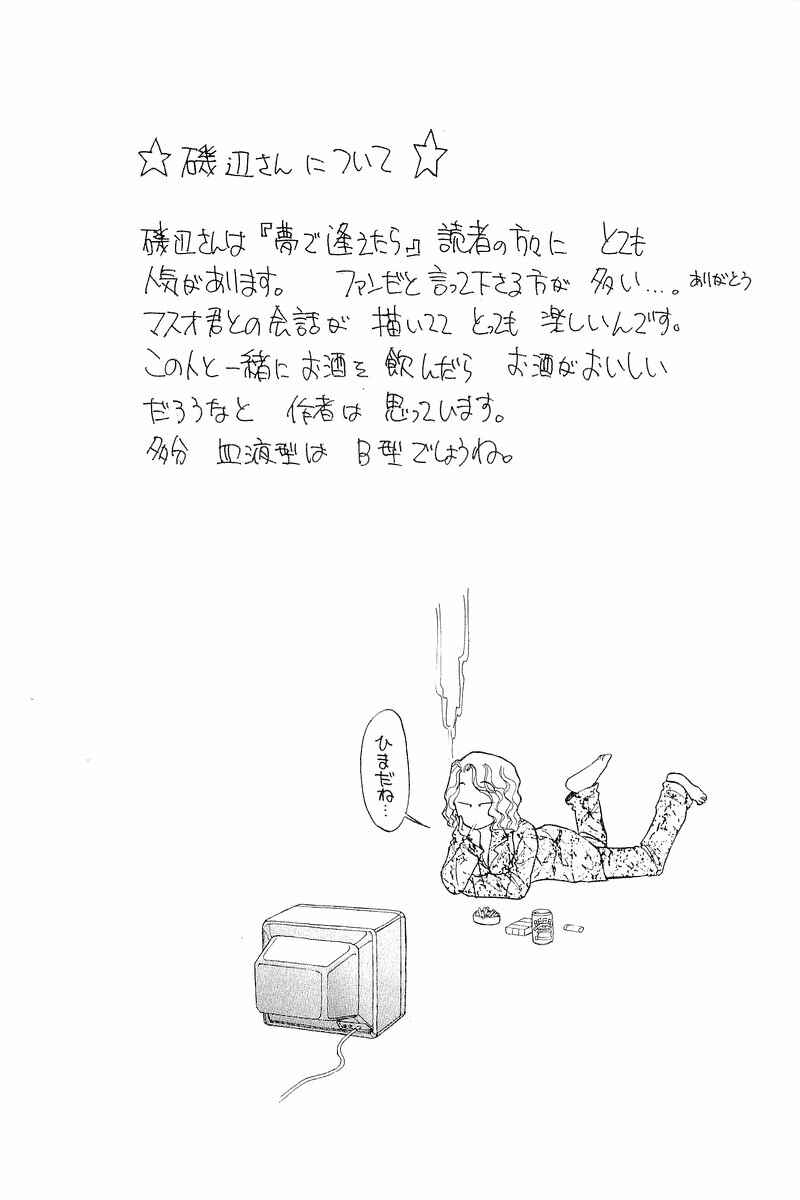 ☆磯辺さんについて☆
磯辺さんは『夢で逢えたら』読者の方々に とても
人気があります。 ファンだと言って下さる方が 多い…。ありがとう
マスオ君との会話が 描いてて とっても 楽しいんです。
この人と一緒に お酒を 飲んだら お酒がおいしい
だろうなと 作者は 思っています。
多分 血液型は B型でしょうね。
ひまだね…